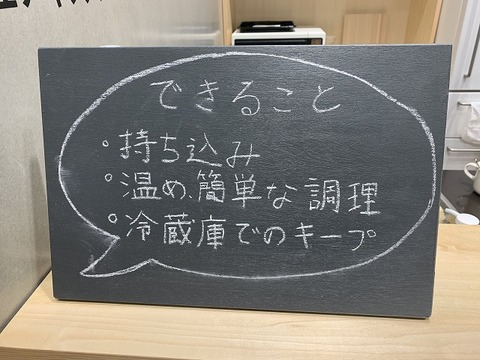 できること
・持ち込み
・温め、簡単な調理
・冷蔵庫でのキープ